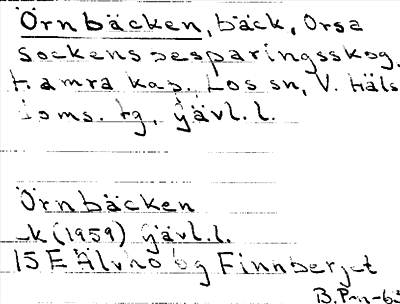 Örnbäcken, bäck, Orsa
sockens besparingsskog,
Hamra kap. Los sn, V. Häls
doms. tg, Gävl. l.
Örnbäcken
-k (1959) Gävl. l.
15E Älvho bg Finnberget